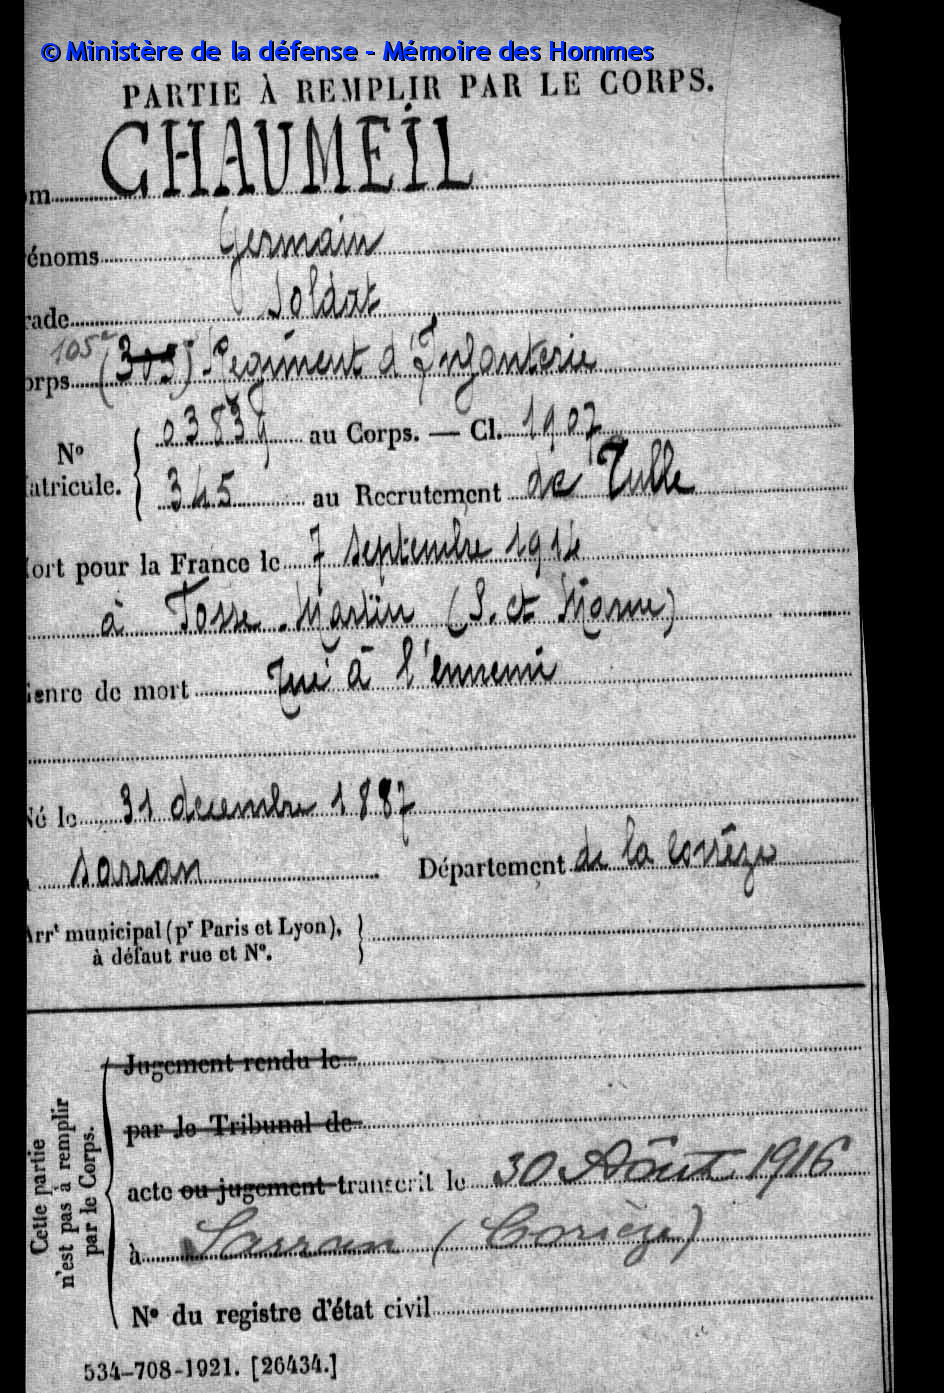 © Ministère de la défense - Mémoire des Hommes
PARTIE À REMPLIR PAR LE CORPS.
om CHAUMEIL
énoms Germain
rade Soldat
105e
orps (305) Régiment d'Infanterie
No
atricule.
03839 au Corps. — Cl. 1907
345 au Recrutement de Tulle
ort pour la France le 7 septembre 1914
à Fosse-Martin (S. et Marne)
enre de mort Tué à l'ennemi
é le 31 decembre 1887
Sarran. Département de la Corrèze
Arrt municipal (pr Paris et Lyon),
à défaut rue et No.
Jugement rendu le
par le Tribunal de
acte ou jugement transcrit le 30 Août 1916
à Sarran (Corrèze)
No du registre d'état civil
Cette partie
n'est pas à remplir
par le Corps.
534-708-1921. [26434.]